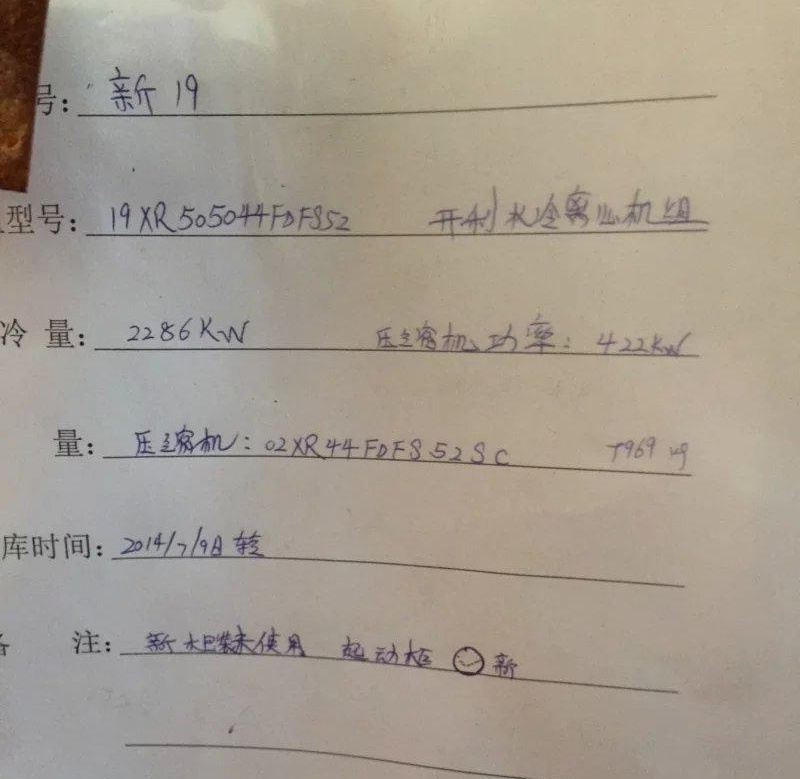 号: 新19
型号: 19XR505044FDFS52 开利水冷离心机组
冷 量: 2286KW 压缩机功率: 422KW
量: 压缩机: 02XR44FDFS52SC 7969 kg
库时间: 2014/7/9日 转
注: 新 使用 起动柜 新